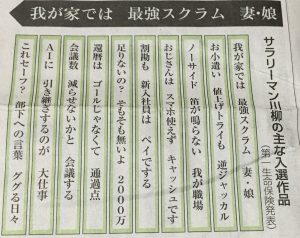 我が家では 最強スクラム 妻・娘
サラリーマン川柳の主な入選作品
(第一生命保険発表)
我が家では 最強スクラム 妻・娘
お小遣い 値上げトライも 逆ジャッカル
ノーサイド 笛が鳴らない 我が職場
おじさんは スマホ使えず キャッシュです
割勘も 新入社員は ペイでする
足りないの? そもそも無いよ 2000万
還暦は ゴールじゃなくて 通過点
会議数 減らせないかと 会議する
AIに 引き継ぎするのが 大仕事
これセーフ? 部下への言葉 ググる日々